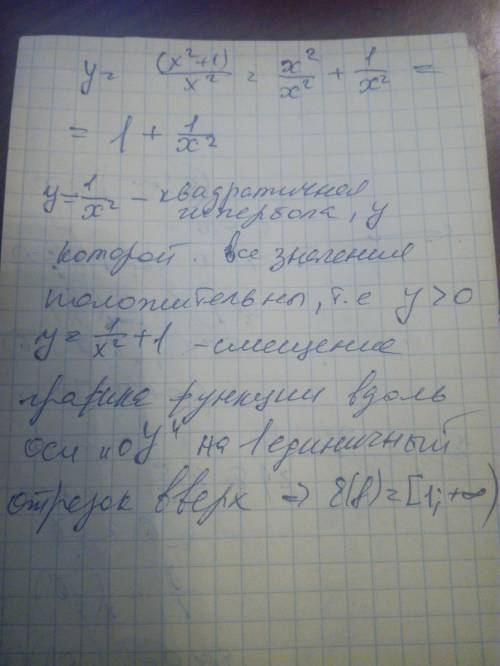 y = (x²+1)/x² = x²/x² + 1/x² =
= 1 + 1/x²
y = 1/x² - квадратичная
гипербола, у
которой все значения
положительны, т.е y > 0
y = 1/x² + 1 - смещение
графика функции вдоль
оси "oy" на 1 единичный
отрезок вверх ⇒ E(f) = [1; +∞)